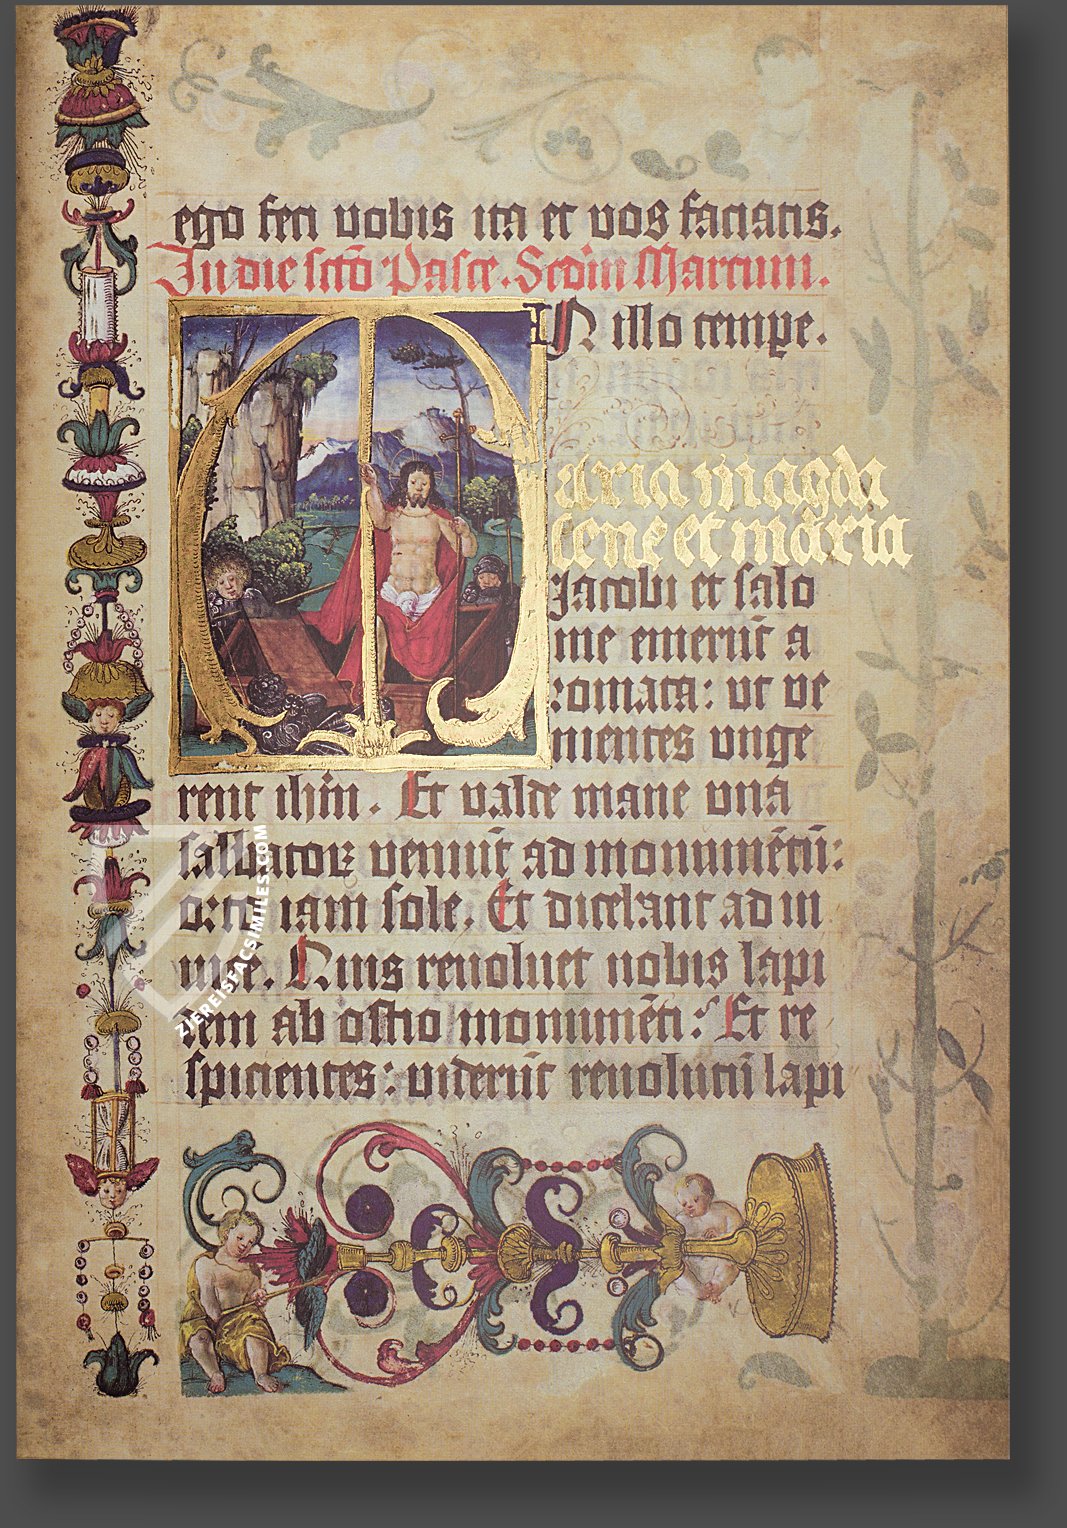 ego feci vobis ita et vos faciatis.
In die sctō Pasce. Scdm Marcum.
IN illo tempe.
Maria magda
lene et maria
Jacobi et salo
me emerūt a
romata: ut ve
nientes unge
rent ihm. Et valde mane una
sabbatorū veniūt ad monumētū:
orto iam sole. Et dicebant ad in
vicē. Quis revolvet nobis lapi
dem ab ostio monumēti: Et re
spicientes: viderūt revolutū lapi
ZIEREISFACSIMILES.COM